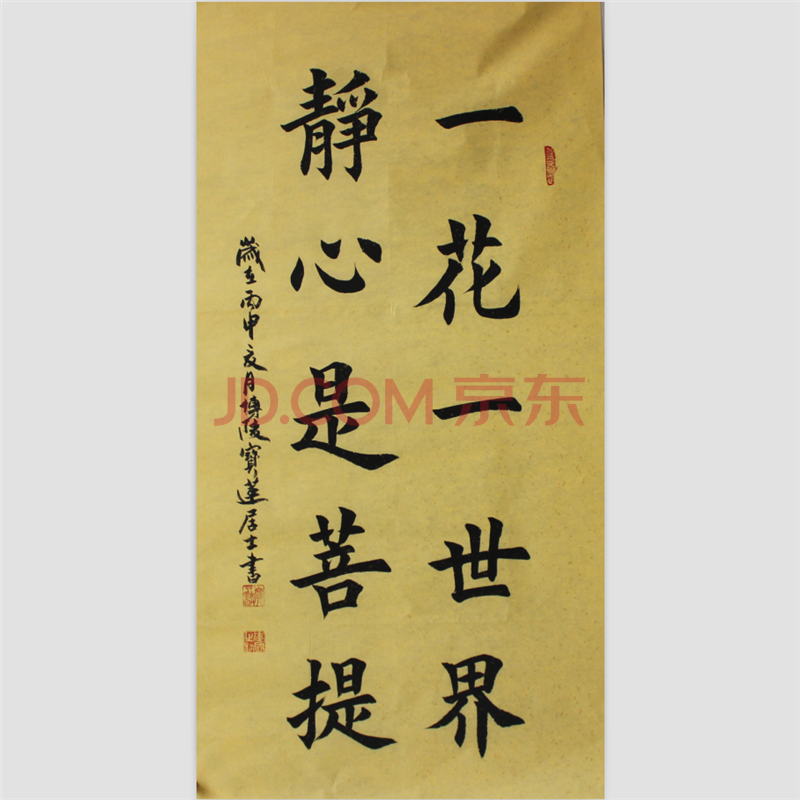 一花一世界
靜心是菩提
歲在丙申夏月博陵寶蓮居士書
JD.COM 京东